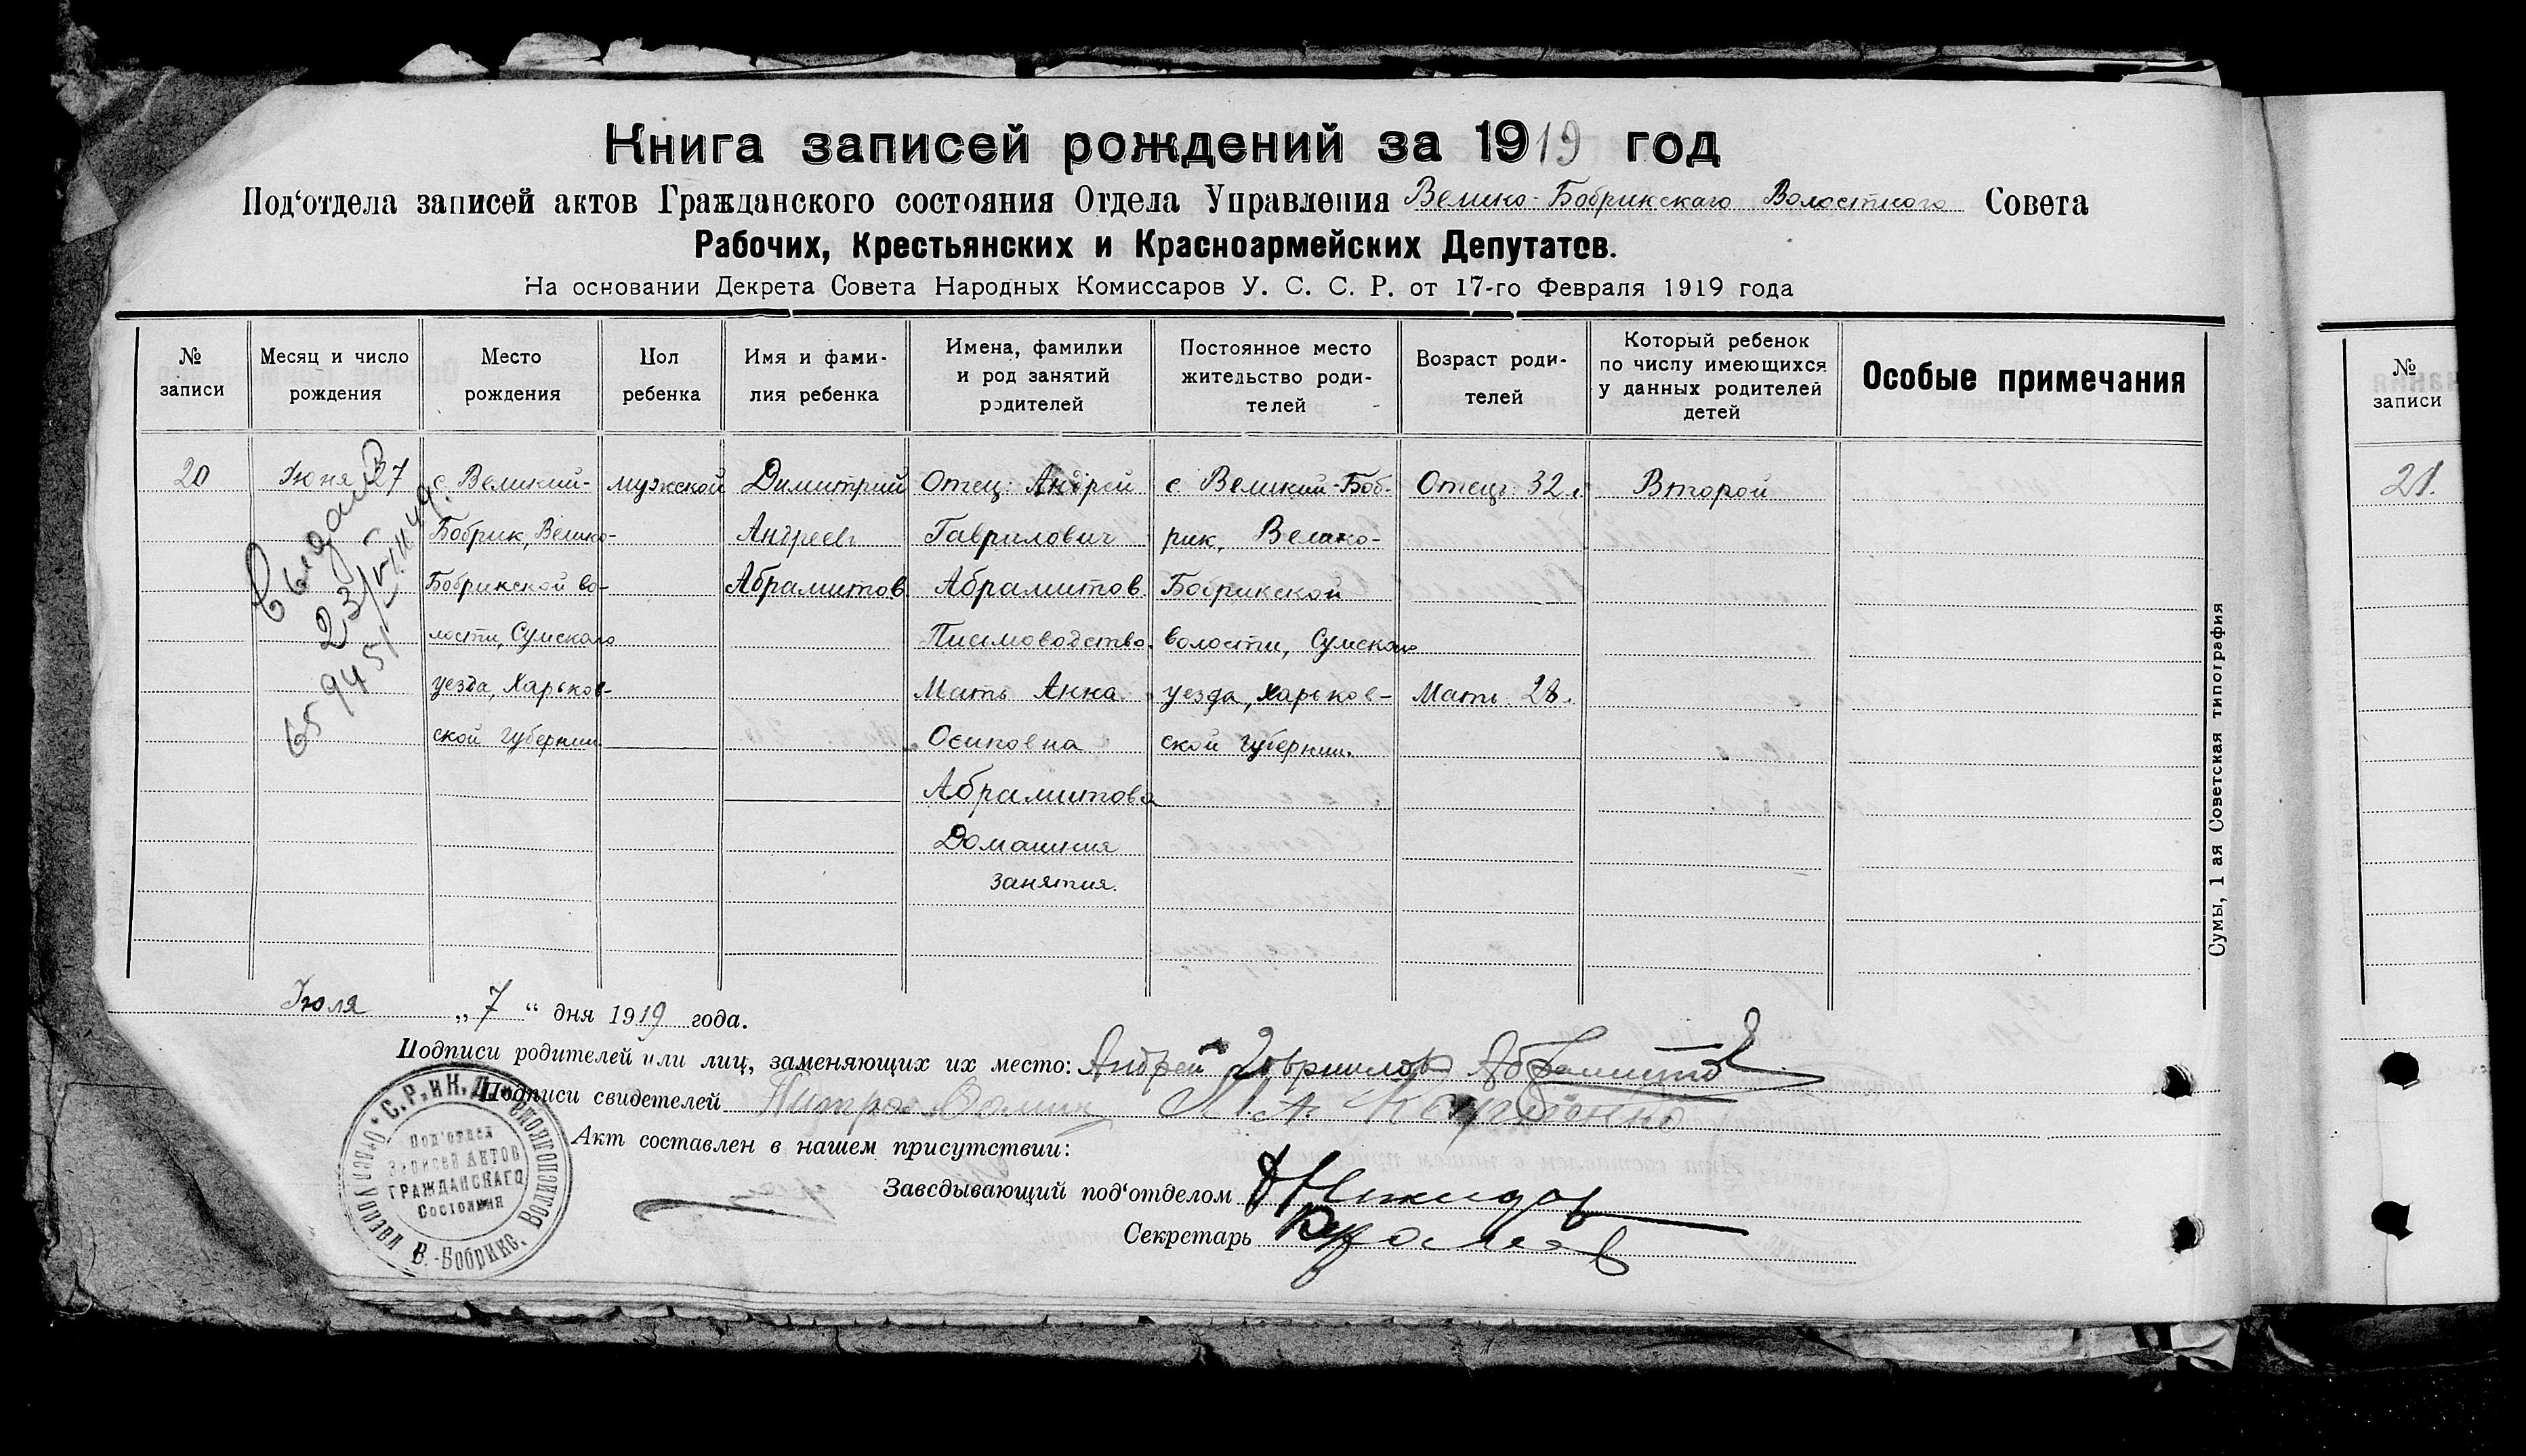 Книга записей рождений за 1919 год
Под‘отдела записей актов Гражданского состояния Отдела Управления Велико-Бобрикскаго Волостного Совета
Рабочих, Крестьянских и Красноармейских Депутатов.
На основании Декрета Совета Народных Комиссаров У. С. С. Р. от 17-го Февраля 1919 года
№ записи
Месяц и число рождения
Место рождения
Пол ребенка
Имя и фами-
лия ребенка
Имена, фамилки
и род занятий
родителей
Постоянное место
жительство роди-
телей
Возраст роди-
телей
Который ребенок
по числу имеющихся
у данных родителей
детей
Особые примечания
20
Июня 27
с. Великий-
Бобрик, Велико-
Бобрикской во-
лости, Сумскаго
уезда, Харьков-
ской губернии
мужской
Димитрий
Андреевъ
Абрамитов
Отец: Андрей
Гаврилович
Абрамитов.
Письмоводство.
Мать Анна
Осиповна
Абрамитова
Домашния
занятия.
с. Великий-Боб-
рик, Велико-
Бобрикской
волости, Сумскаго
уезда, Харьков-
ской губернии.
Отецъ 32 г.
Мать 28.
Второй
Июля „ 7 “ дня 1919 года.
Подписи родителей или лиц, заменяющих их место: Андрей Абрамитов
Подписи свидетелей
Акт составлен в нашем присутствии:
Заведывающий под‘отделом
Секретарь
Под'отдел
Записей Актов
Гражданскаго
Состояния
В.-Бобрикс.
Сумы, 1 ая Советская типография
№
записи
21.